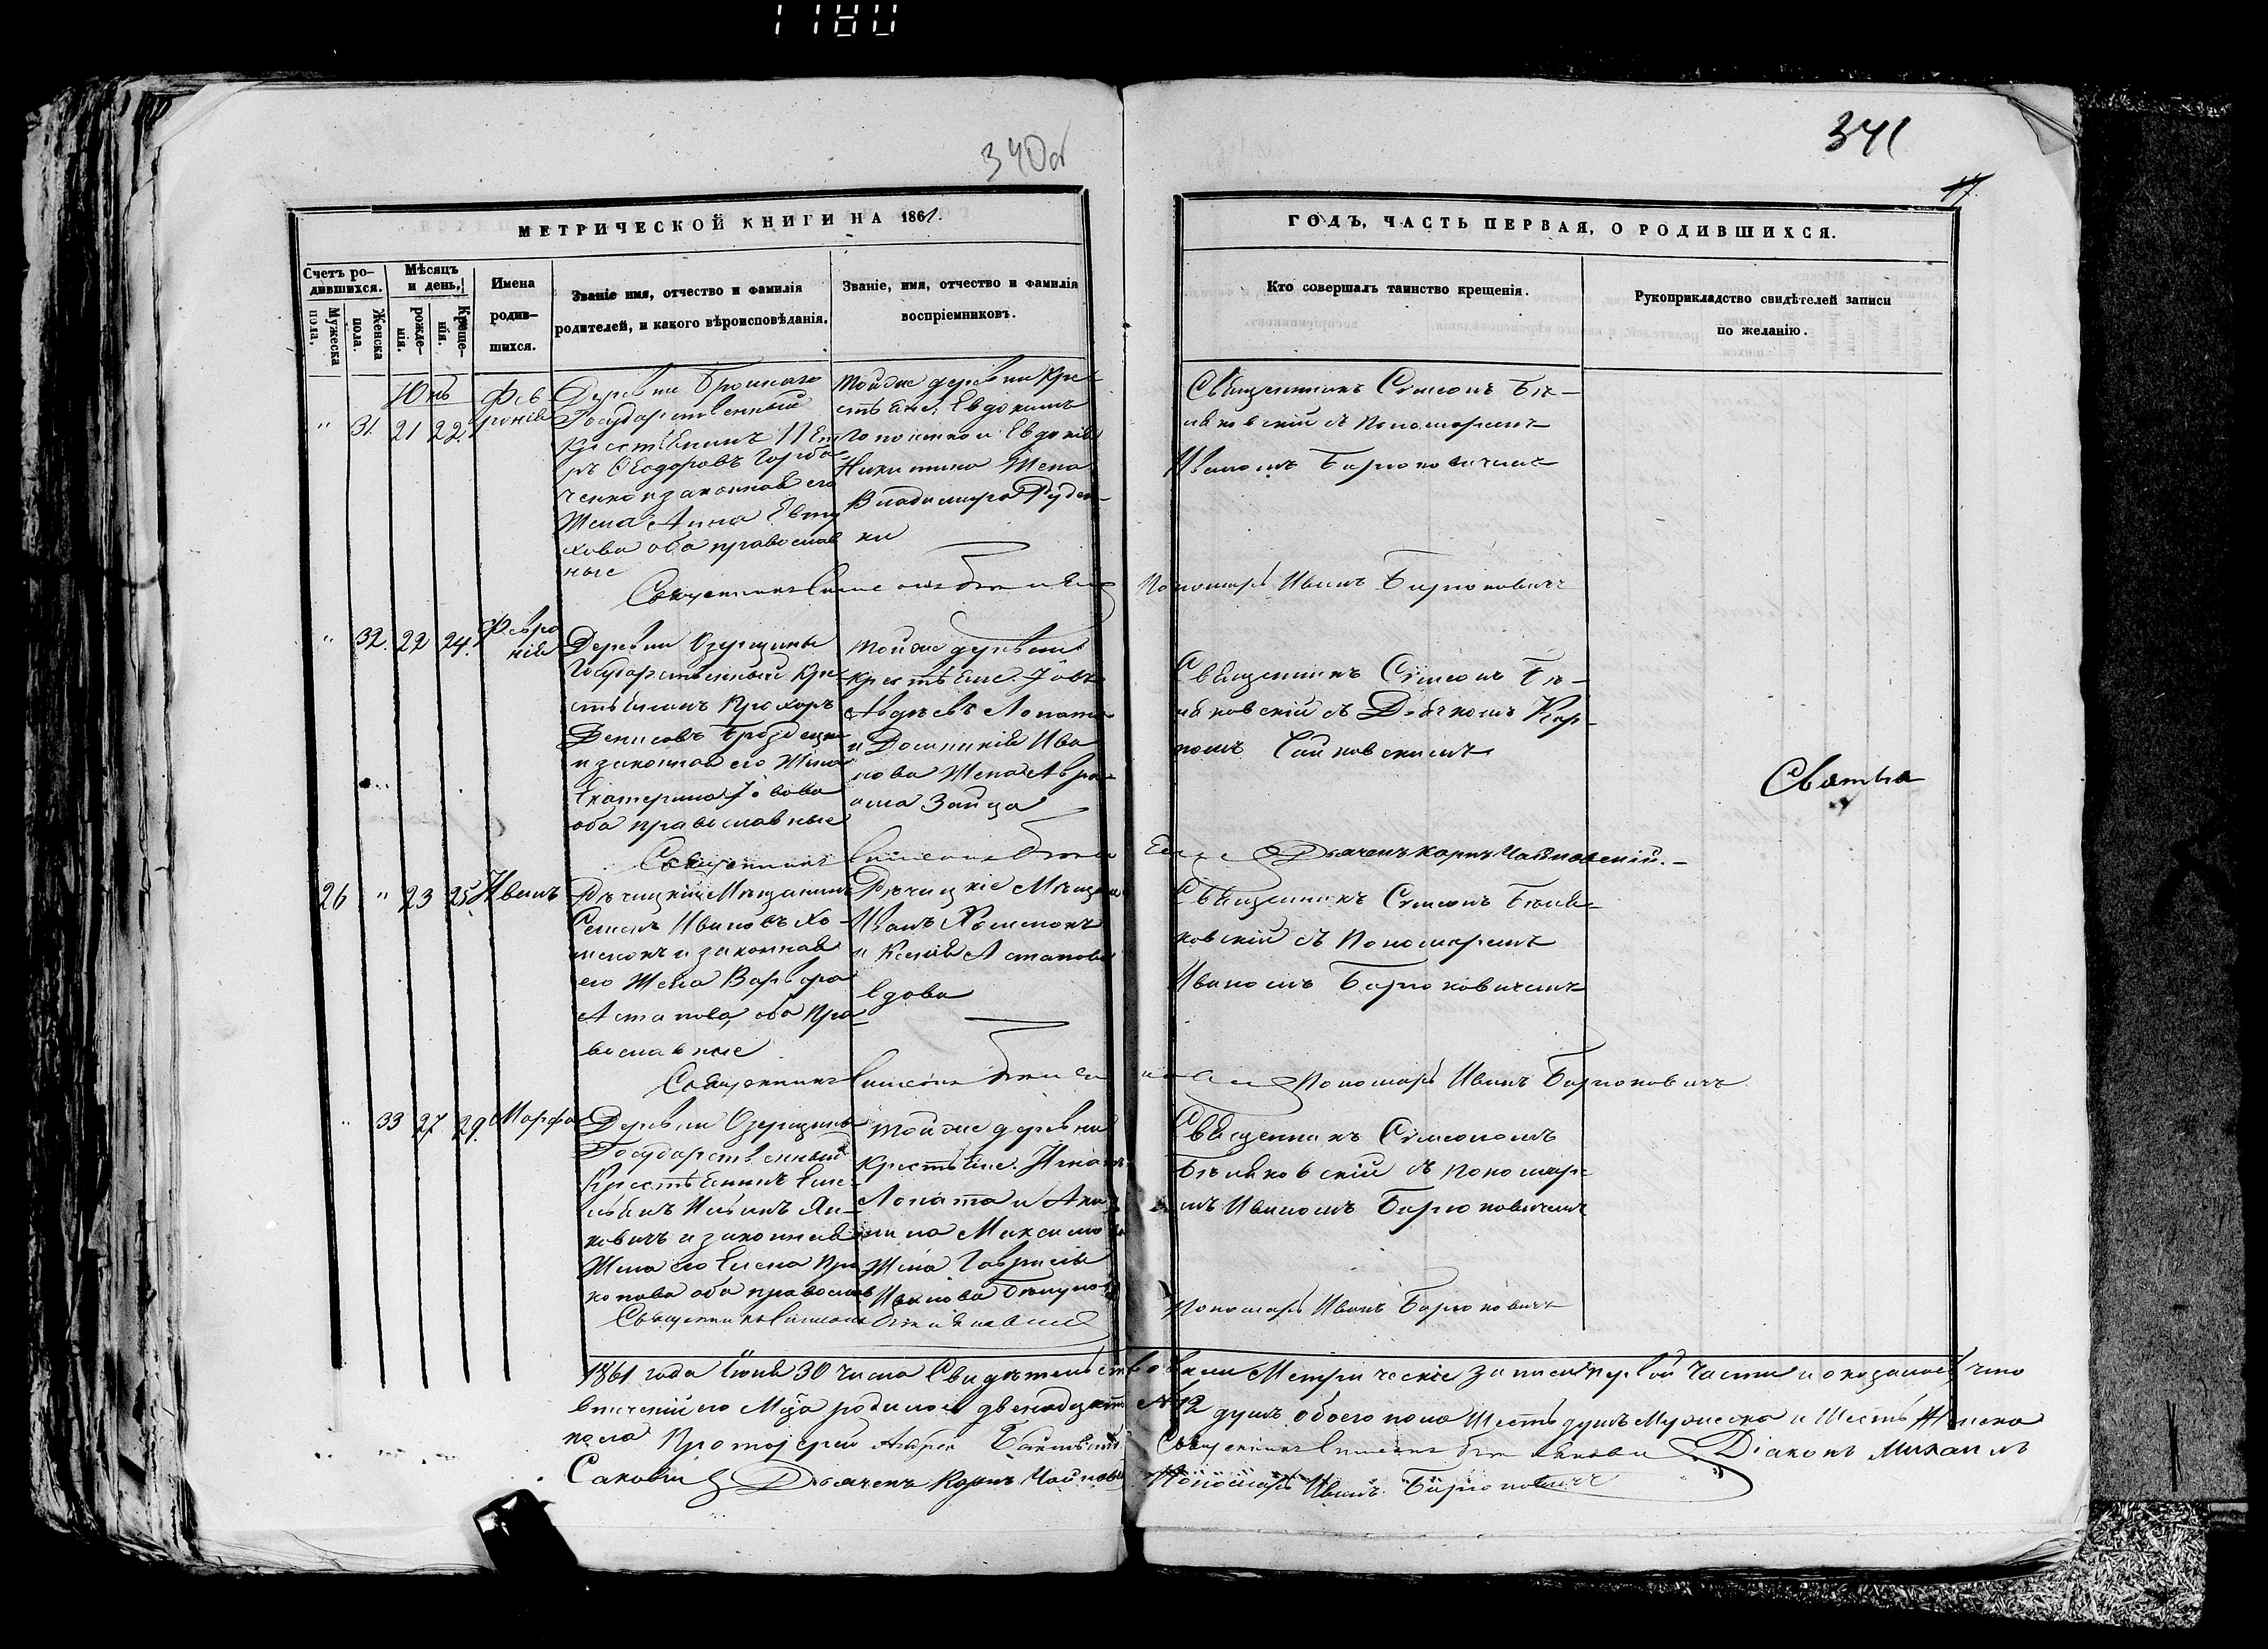 1180
340об
341
17
МЕТРИЧЕСКОЙ КНИГИ НА 1861.
ГОДЪ, ЧАСТЬ ПЕРВАЯ, О РОДИВШИХСЯ.
Счетъ ро-
дившихся.
Мужеска
пола,
Женска
пола.
Мѣсяцъ
и день.
рожде-
нія.
Креще-
нія.
Имена
родив-
шихся.
Званіе имя, отчество и фамилія
родителей, и какого вѣроисповѣданія.
Званіе, имя, отчество и фамилія
воспріемниковъ.
Кто совершалъ таинство крещенія.
Рукоприкладство свидѣтелей записи
по желанію.
Юнь
" 31. 21 22.
Фев
ронія
Деревни
Государственный
Крестьянинъ Пет
ръ Ѳеодоровъ Горба
ченко и законная его
Жена Анна Евти
хова оба православ
ные
Тойже деревни Кре-
стьяне: Евдокимъ
и Евдокія
Никитина Жена
Владимира Руден-
ки
Священникъ Симеонъ Бѣ-
ляковскій съ Пономаремъ
Иваномъ Бирюковичемъ
Священникъ Симеонъ
Пономарь Иванъ Бирюковичъ
" 32. 22 24.
Февро
нія
Деревни Озерщины
Государственный Кре-
стьянинъ Прохоръ
Денисовъ
и законная его Жена
Екатерина Іовова
оба православные
Тойже деревни
крестьяне. Іовъ
Авдѣевъ Лопата
и Домникія Ива
нова Жена Авра-
ама Зайца
Священникъ Симеонъ Бѣ-
ляковскій съ Дьячкомъ Кар-
помъ Чайковскимъ
Святка
Священникъ Симеонъ
Дьячекъ Карпъ Чайковскій.-
26 " 23 25 Иванъ
Рѣчицкій Мѣщанинъ
Семенъ Ивановъ Хо-
менокъ и законная
его Жена Варвара
Астапова, оба Пра-
вославные
Рѣчицкіе Мѣщане
Иванъ Хоменокъ
и Ксенія Астапова
вдова
Священникъ Симеонъ Бѣля-
ковскій съ Пономаремъ
Иваномъ Бирюковичемъ
Священникъ Симеонъ
Пономарь Иванъ Бирюковичъ
" 33 27 29. Марфа
Деревни Озерщины
Государственный
Крестьянинъ Еме-
льянъ Ильинъ Ян-
ковичъ и законная
Жена его Елена Про
копова оба православ
Тойже деревни
крестьяне. Игнатъ
Лопата и Аки
лина Максимова
Жена Гаврилы
Иванова
Священникъ Симеономъ
Бѣляковскій съ Пономар-
емъ Иваномъ Бирюковичемъ
Священникъ Симеонъ Бѣляковскій
Пономарь Иванъ Бирюковичъ
1861 года Іюня 30 числа Свидѣтельствовали Метрическіе записи первой Части и оказалось что
втеченіи его Мца родилось двенадцать №12 душъ обоего пола Шесть душъ Мужеска и Шесть Женска
пола Протоіерей Андрей Священникъ Симеонъ Діаконъ Михаилъ
Саковичъ Дьячекъ Карпъ Чайковскій Пономарь Иванъ Бирюковичъ